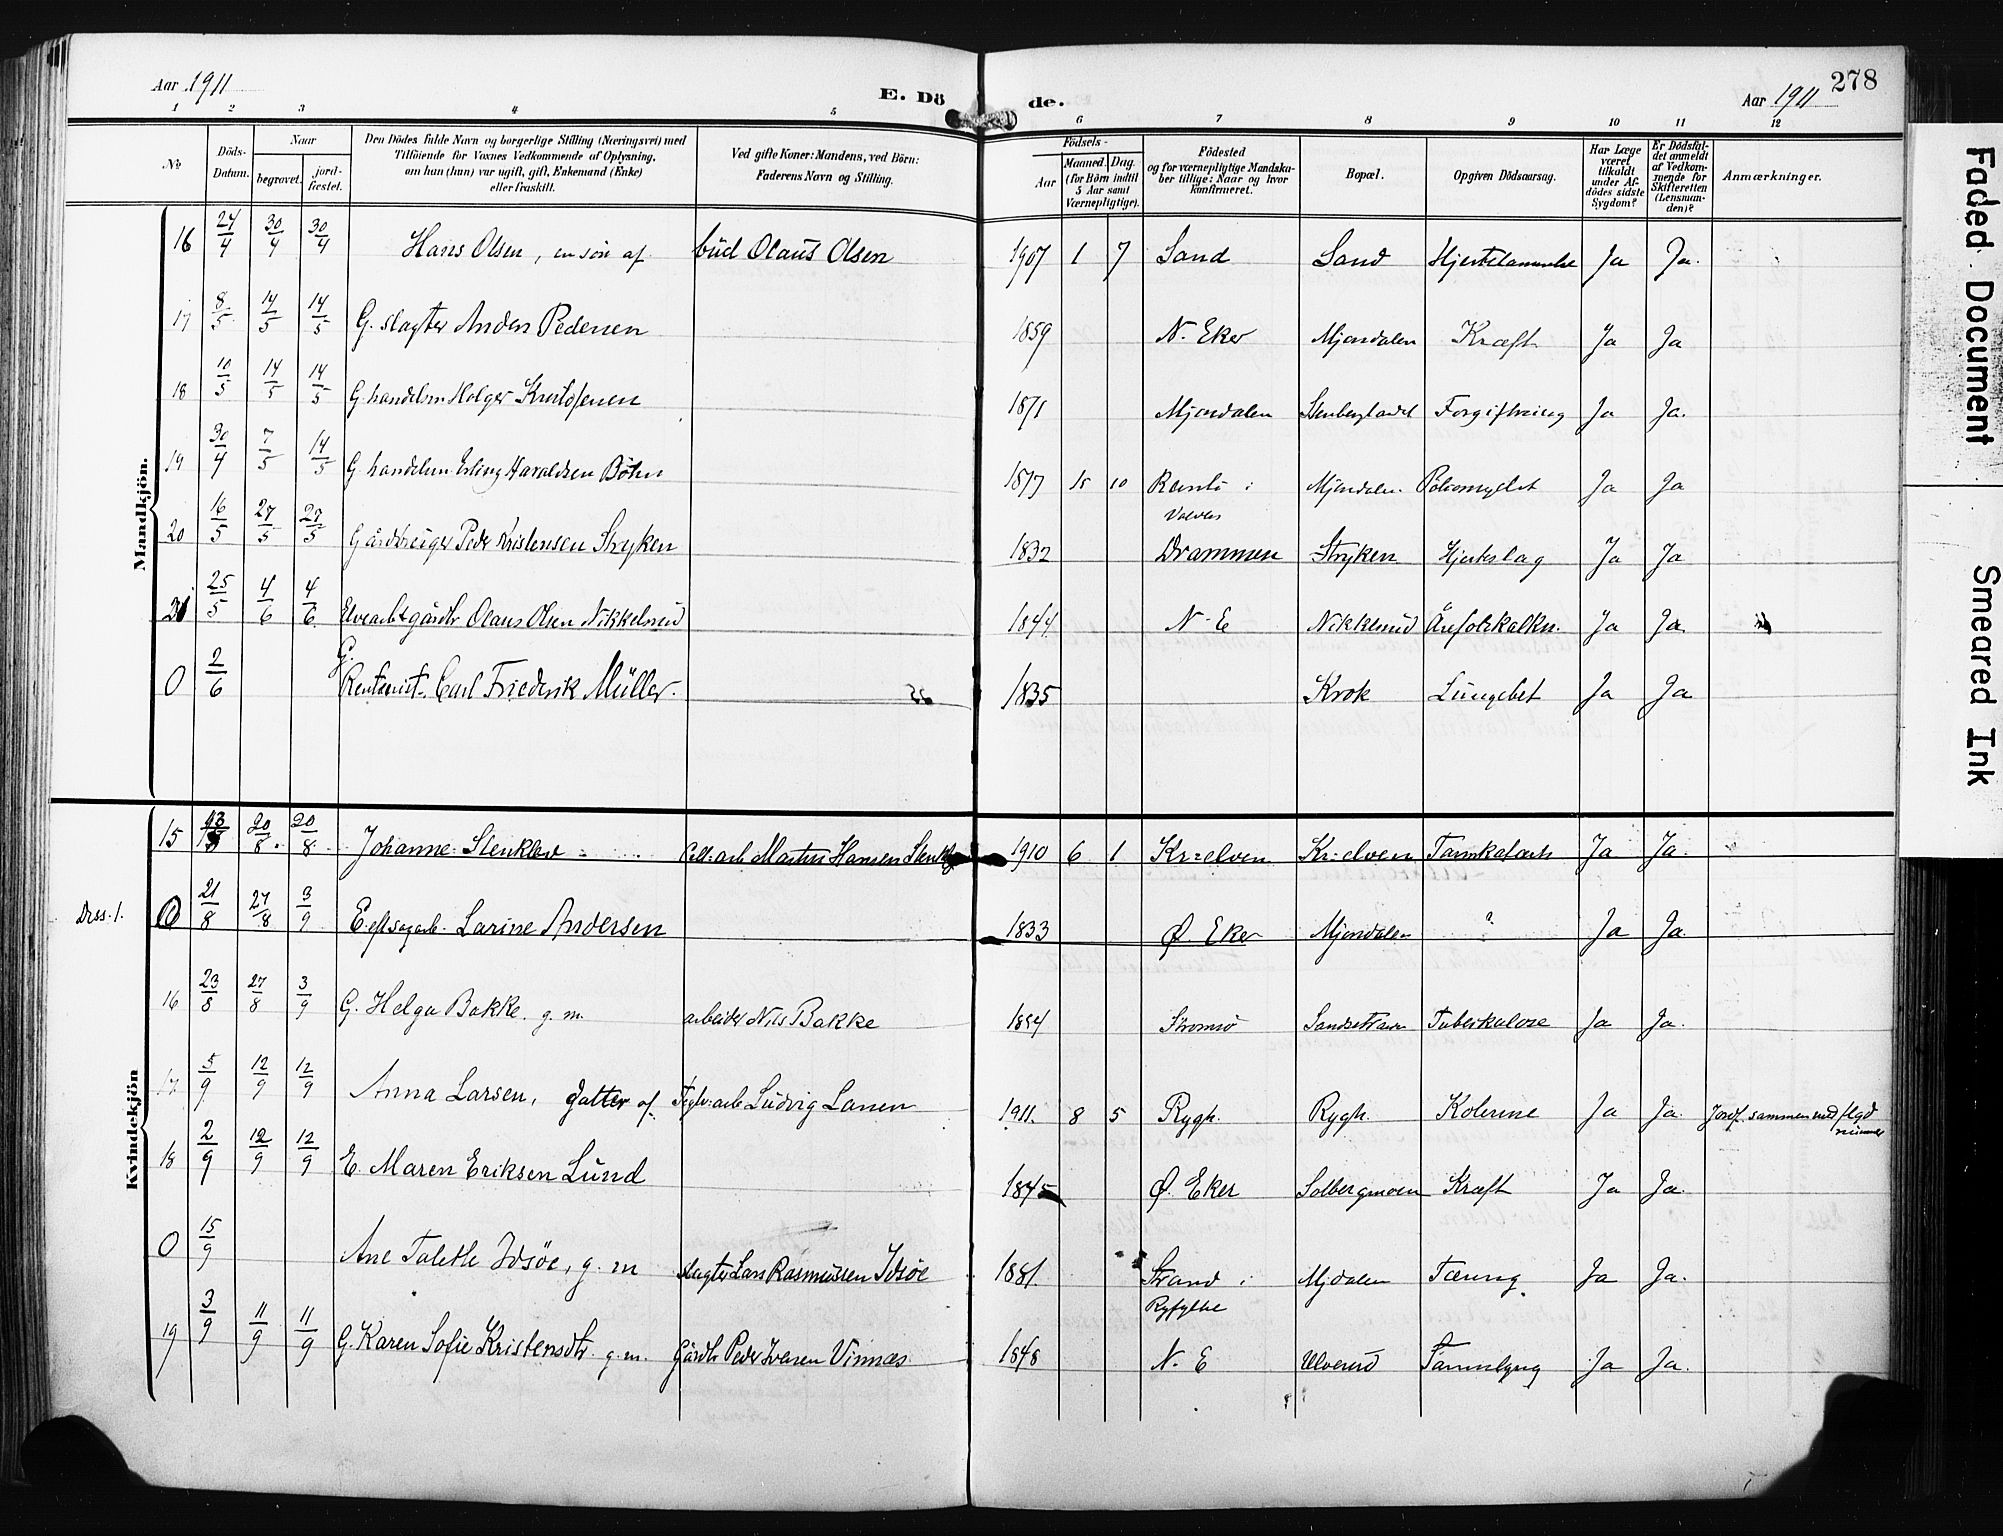 Aar 1911
E. Dö
de.
Aar 1911
278
1 2 3 4 5 6 7 8 9 10 11 12
No
Döds-Datum.
Naar
begravet.
jord-fæstet.
Den Dödes fulde Navn og borgerlige Stilling (Næringsvei) med Tilföiende for Voxnes Vedkommende af Oplysning, om han (hun) var ugift, gift, Enkemand (Enke) eller fraskilt.
Ved gifte Koner: Mandens, ved Börn: Faderens Navn og Stilling.
Födsels-
Aar
Maaned. Dag.
(for Börn indtil 5 Aar samt Værnepligtige).
Födested og for værnepligtige Mandskaber tillige: Naar og hvor konfirmeret.
Bopæl.
Opgiven Dödsaarsag.
Har Læge været tilkaldt under Afdödes sidste Sygdom?
Er Dödsfaldet anmeldt af Vedkommende for Skifteretten (Lensmanden)?
Anmærkninger.
Mandkjön.
16 24/4 30/4 30/4 Hans Olsen, en søn af bud Olaus Olsen 1907 1 7 Sand Sand Ja Ja.
17 8/5 14/5 14/5 G. slagter Anders Pedersen 1859 N. Eker Mjøndalen Kræft Ja Ja
18 10/5 14/5 14/5 G. handelsm Holger Kristofersen 1871 Mjøndalen Stenberglandet Forgiftning Ja Ja.
19 30/4 7/5 14/5 G handelsm. Erling Haraldsen Bøhn 18 15 10 i Valdres Mjøndalen Ja Ja
20 16/5 27/5 27/5 Gårdbruger Peder Kristensen Stryken 1832 Drammen Stryken Hjerteslag Ja Ja
21 25/5 4/6 4/6 Elvearb & gårdbr Olaus Olsen Nikkelsrud 1844 N. E Nikkelsrud Ja Ja
0 2/6 G. Rentenist. Carl Friederik Müller. 1835 Krok Lungebet Ja Ja
Kvindekjön
15 13/8 20/8 20/8 Johanne Stenklev Cell:arb Martin Hansen 1910 6 1 Kr:elven Kr:elven Tarmkatarh Ja Ja.
Diss. 1.
0 21/8 27/8 3/9 E. eft sagarb. Larine Andersen 1833 Ø. Eker Mjøndalen ? Ja Ja.
16 23/8 27/8 3/9 G. Helga Bakke. g. m. arbeider Nils Bakke Strømsø Tuberkulose Ja Ja.
17 5/9 12/9 12/9 Anna Larsen, datter af Teglv:arb Ludvig Larsen 1911. 8 5 Rygh. Rygh. Kolerine Ja Ja. Jordf. sammen med flgd nummer
18 2/9 12/9 12/9 E. Maren Eriksen Lund 1845 Ø. Eker Solbergmoen Kræft Ja Ja.
0 15/9 Ane Talette Idsöe, g. m slagter Lars Rasmussen Idsöe 1881. Strand i Ryfylke Mjdalen Tæring. Ja Ja.
19 3/9 11/9 11/9 G. Karen Sofie Kristensdtr. g. m. Gårdbr Peder Iversen Vinnæs. 1848 N. E Ulverud Ja Ja.
Faded Document
Smeared Ink